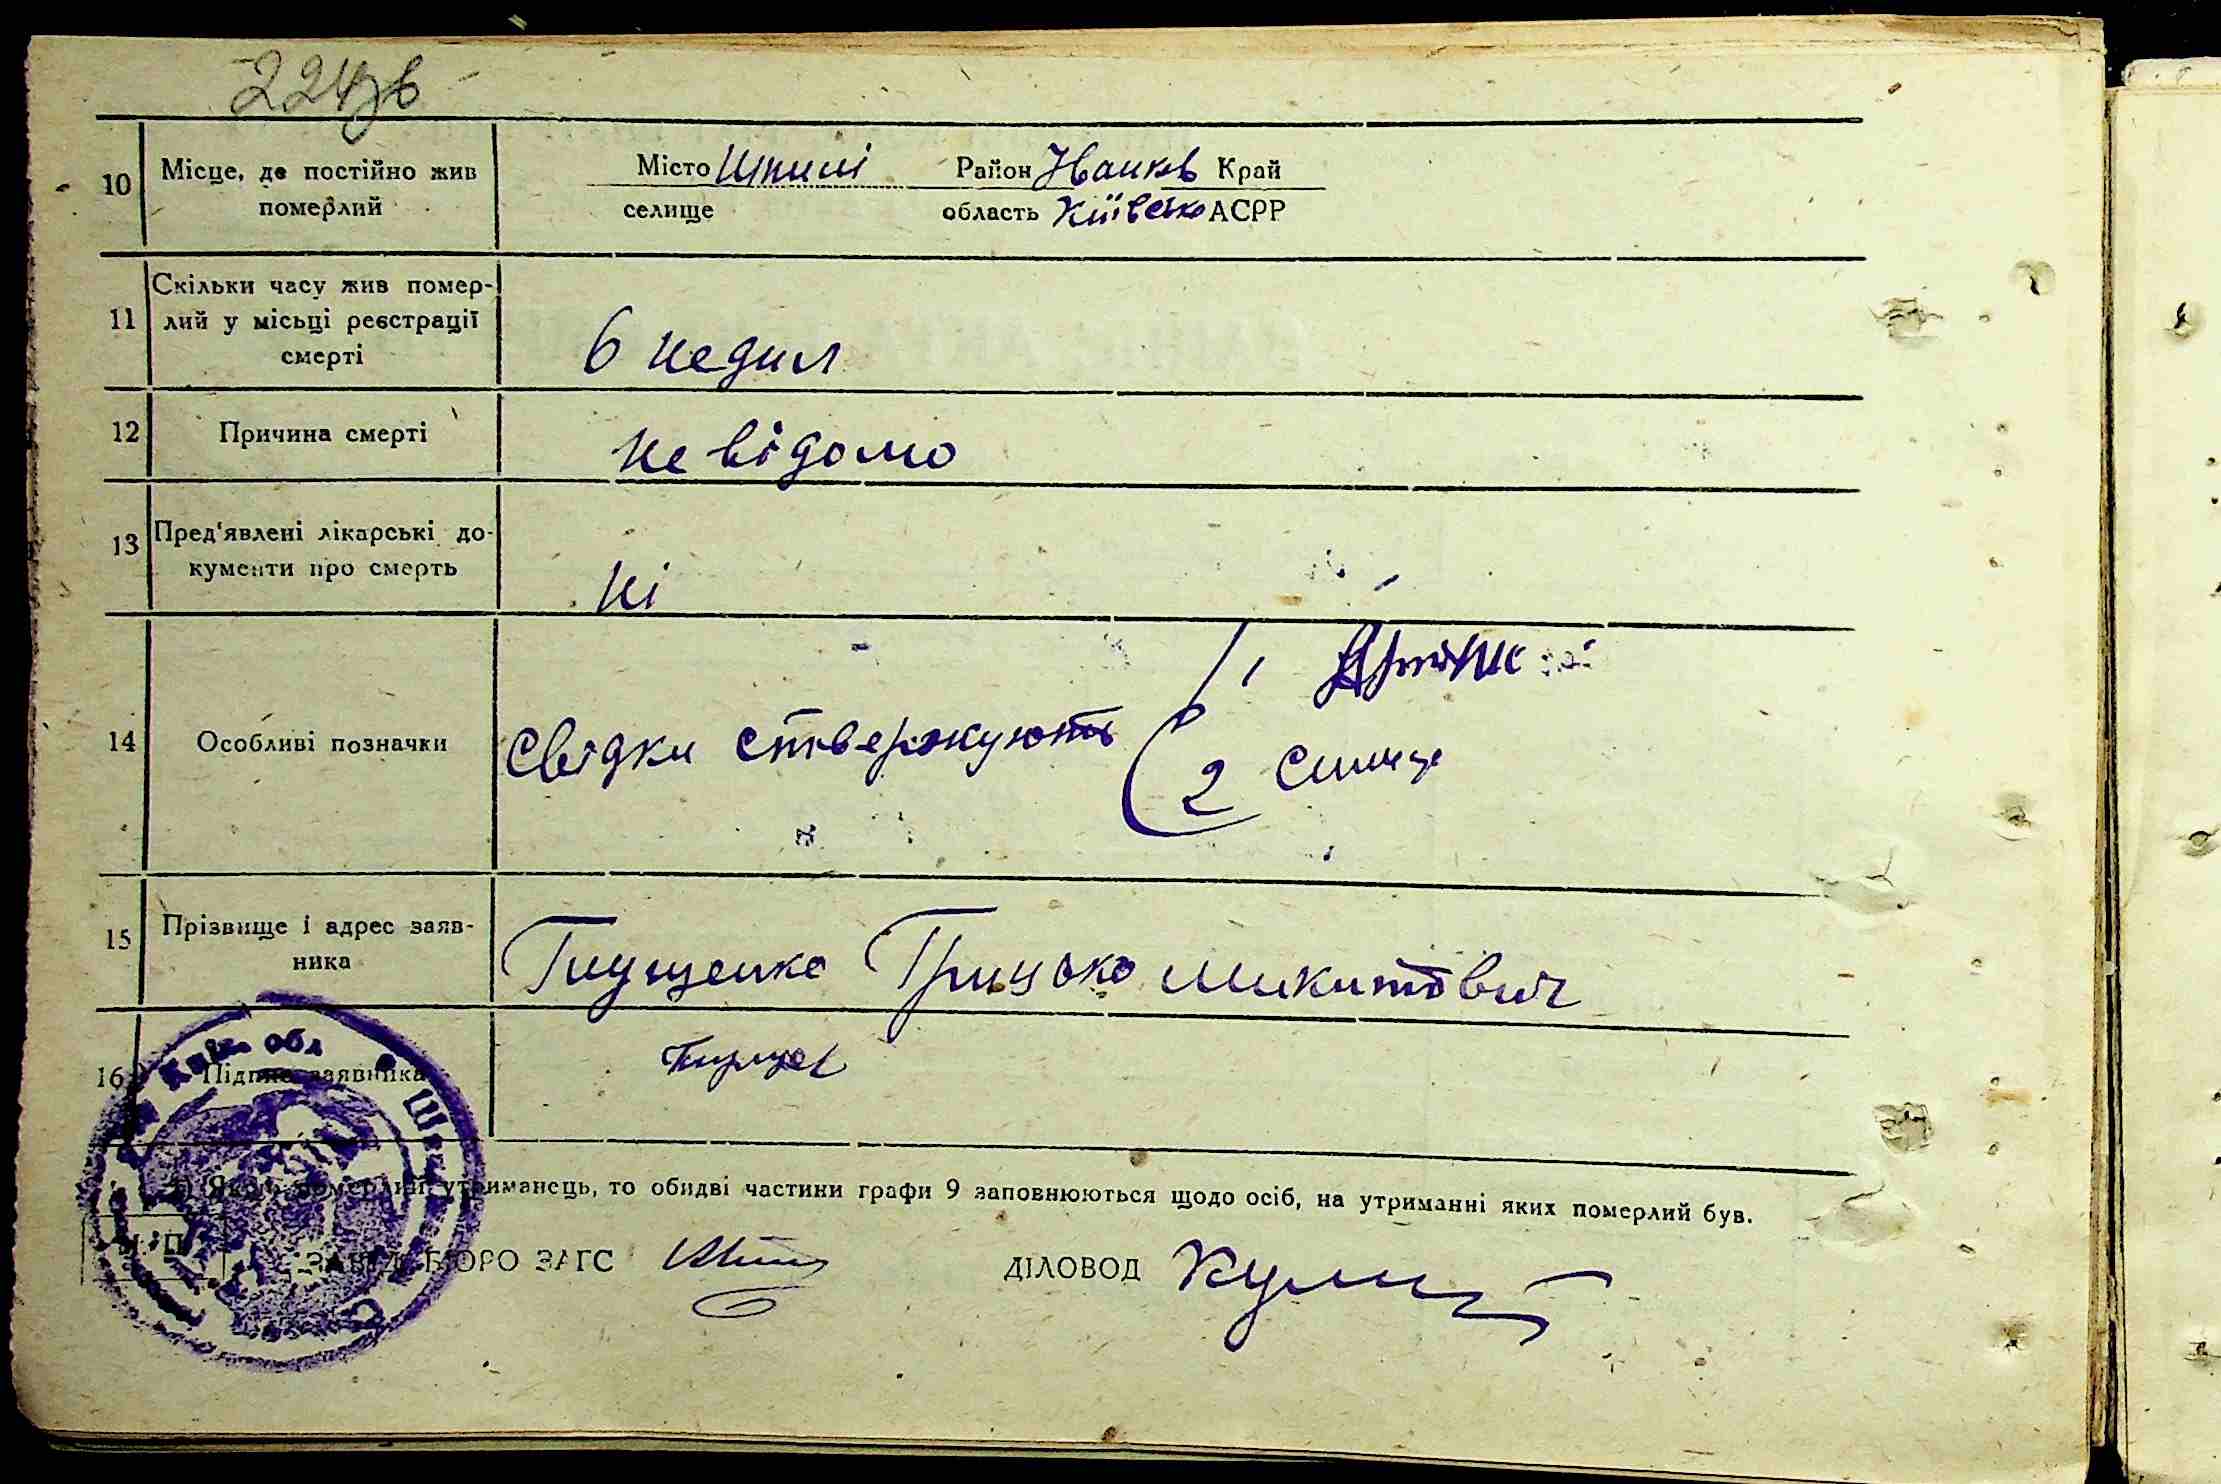 224зв
10 Місце, де постійно жив Місто Шпилі Район Іванків Край
померлий селище область Київсько АСРР
Скільки часу жив помер-
11 лий у місьці реєстрації
смерті 6 недил
12 Причина смерті не відомо
13 Пред'явлені лікарські до-
кументи про смерть ні
1
14 Особливі позначки Свідки ствержують
2 Синиця
15 Прізвище і адрес заяв-
ника Тищенко Грицько Микитович
16 Підпис заявника
Київ обл
Якщо померлий утриманець, то обидві частини графи 9 заповнюються щодо осіб, на утриманні яких померлий був.
М. П.
ЗАВІД. БЮРО ЗАГС ДІЛОВОД